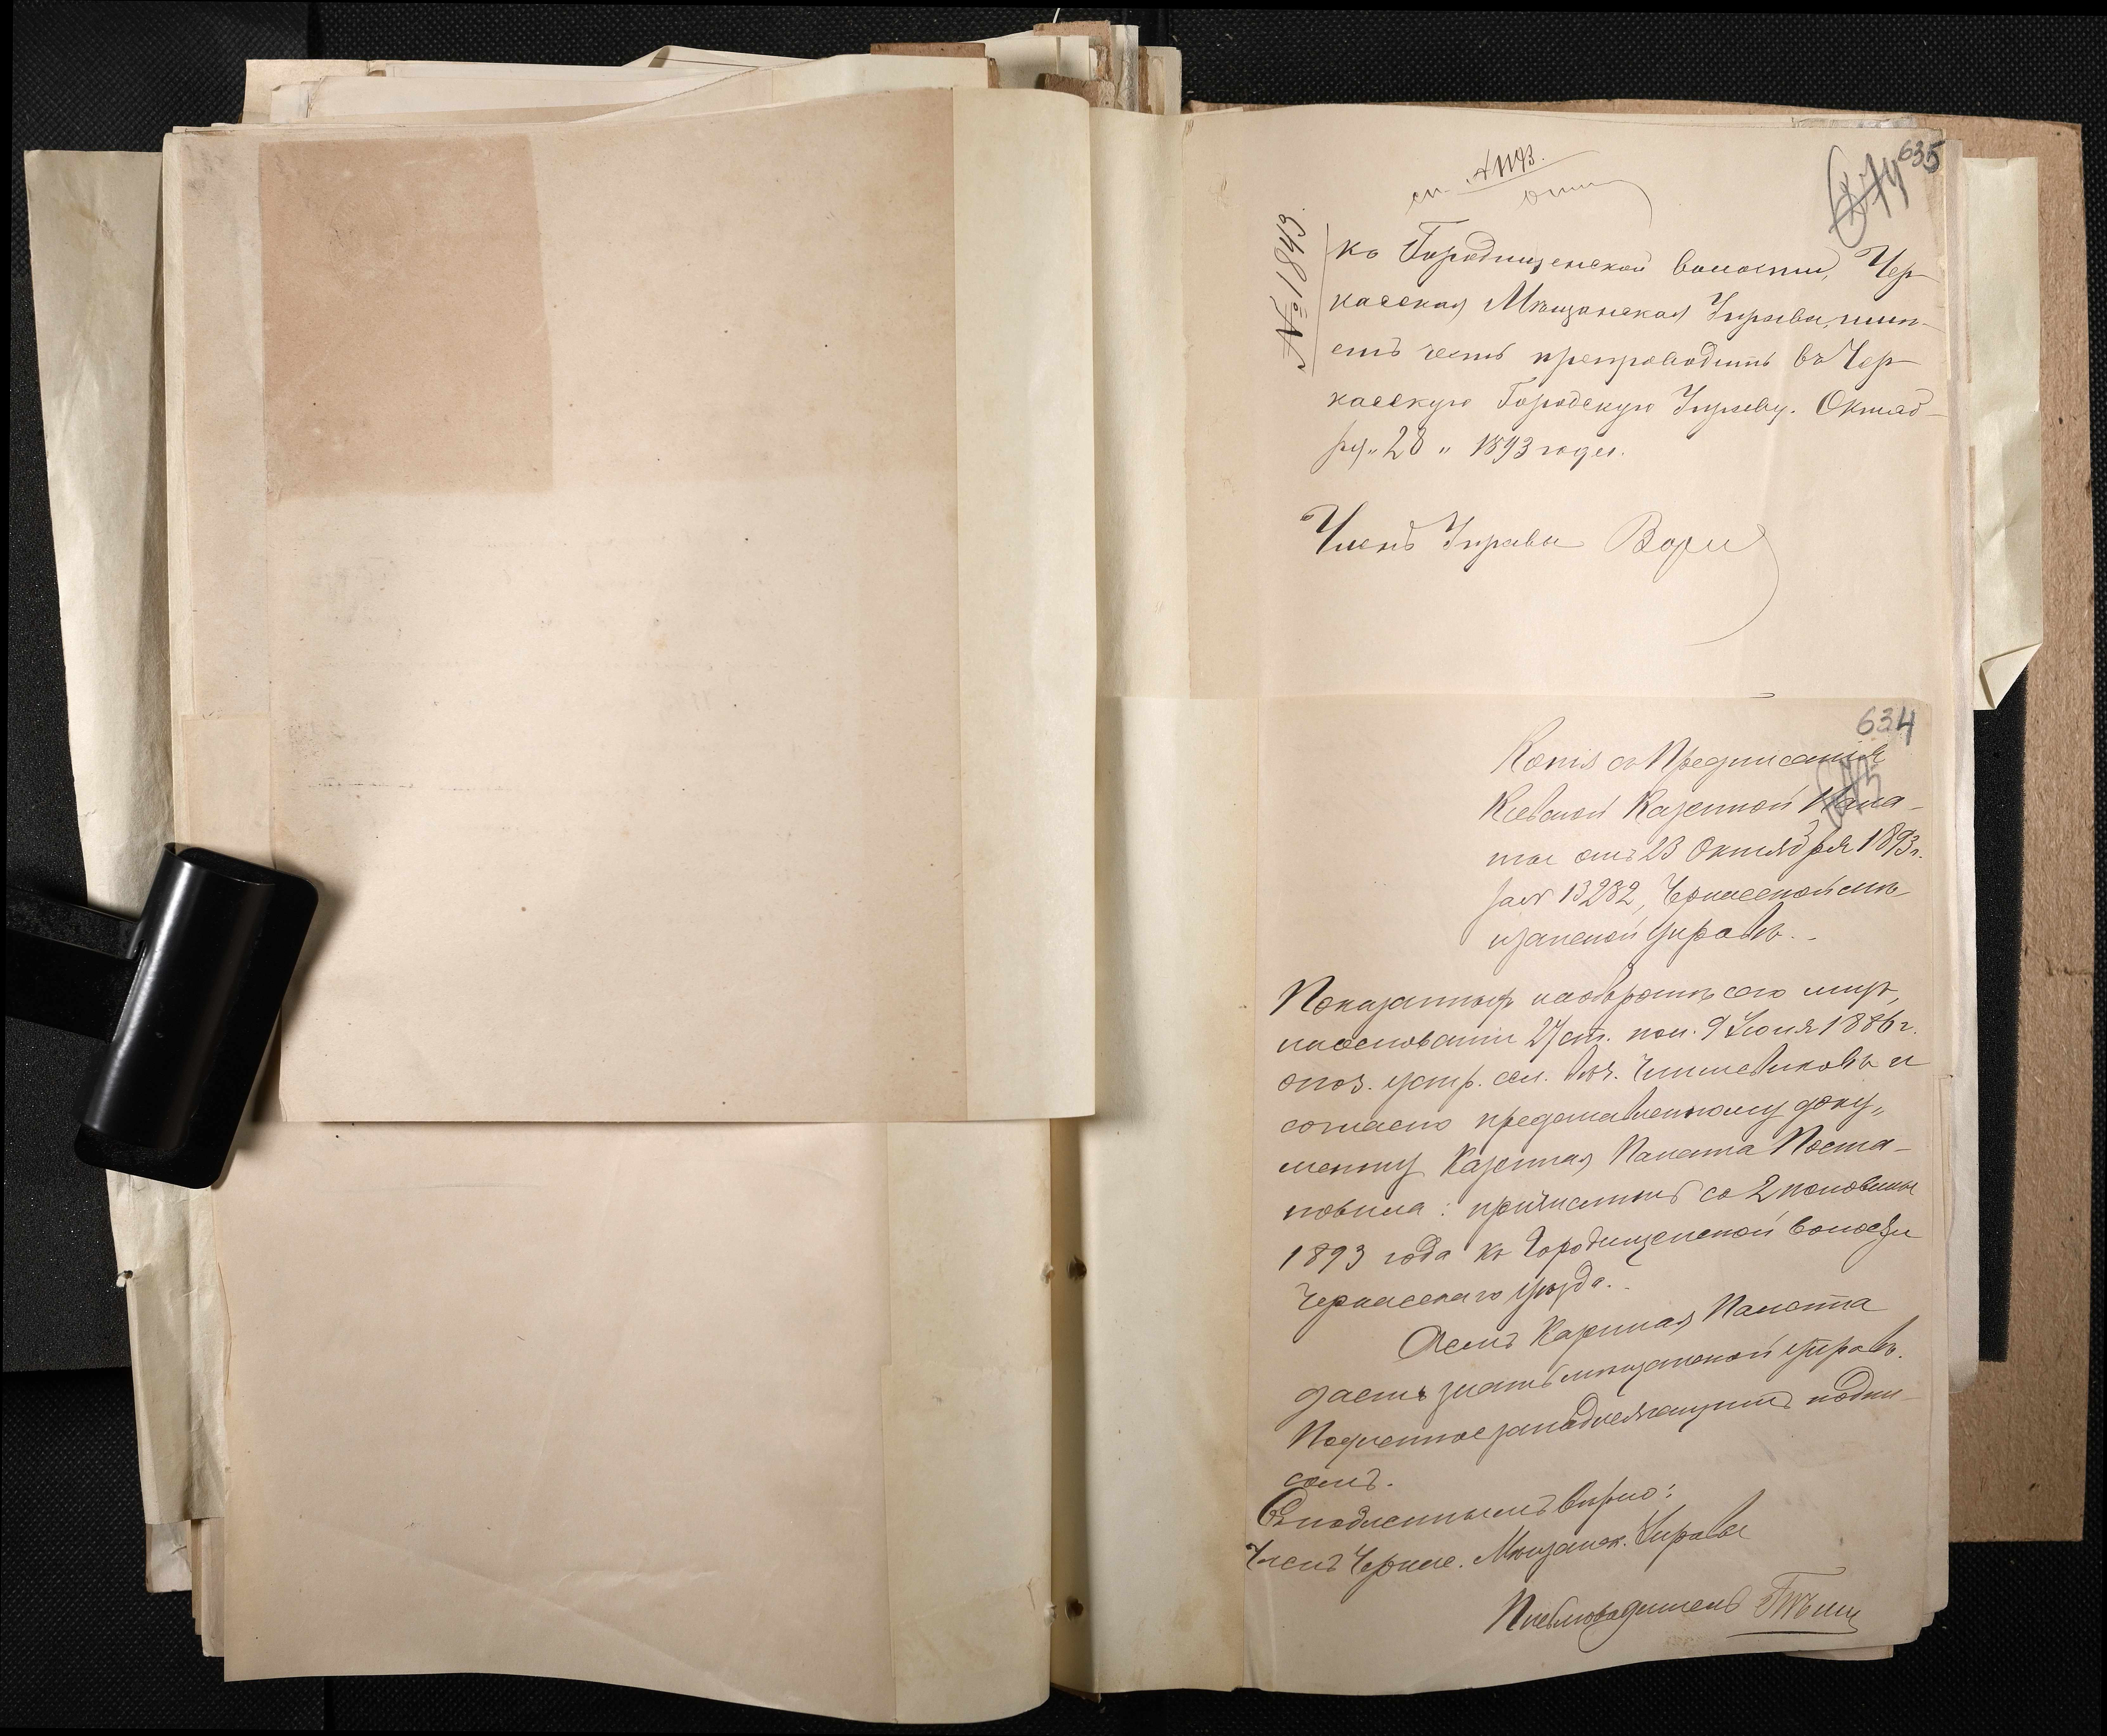 635
№ 1843
къ Городищенской волости, Чер-
касская Мѣщанская Управа, имѣ-
етъ честь препроводить въ Чер-
касскую Городскую Управу. Октяб-
ря „28„ 1893 года.
Членъ Управы
634
Копія съ Предписанія
Кіевской Казенной Пала-
ты отъ 23 Октября 1893 г.
за № 13282, Черкасской мѣ-
щанской управѣ.
Показанныхъ на оборотѣ сего лицъ,
на основаніи 27 ст. пол. 9 Іюня 1886 г.
о поз. устр. сел. вѣч. Чиншевиковъ и
согласно представленному доку„
менту Казенная Палата Поста-
новила: причислить со 2 половины
1893 года къ Городищенской волости
Черкасскаго уѣзда.
О семъ Казенная Палата
даетъ знать мѣщанской управѣ.
Подленное за надлежащимъ подпи-
сомъ.
Съ подленнымъ вѣрно:
Членъ Черкас. Мѣщанск. Управы
Письмоводитель